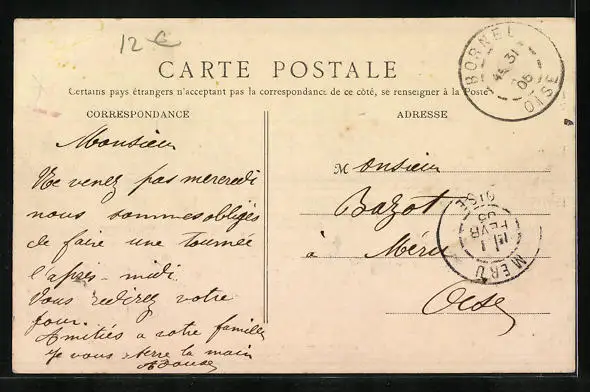 12 €
CARTE POSTALE
Certains pays étrangers n'acceptant pas la correspondance de ce côté, se renseigner à la Poste
CORRESPONDANCE
Monsieur
Ne venez pas mercredi
nous sommes obligés
de faire une tournée
l'après-midi.
Vous redirez votre
jour.
Amitiés a votre famille
Je vous serre la main
ADRESSE
Monsieur
Bazot
à Méru
Oise
BORNEL
31
05
OISE
MERU
1
FEVR
05
OISE